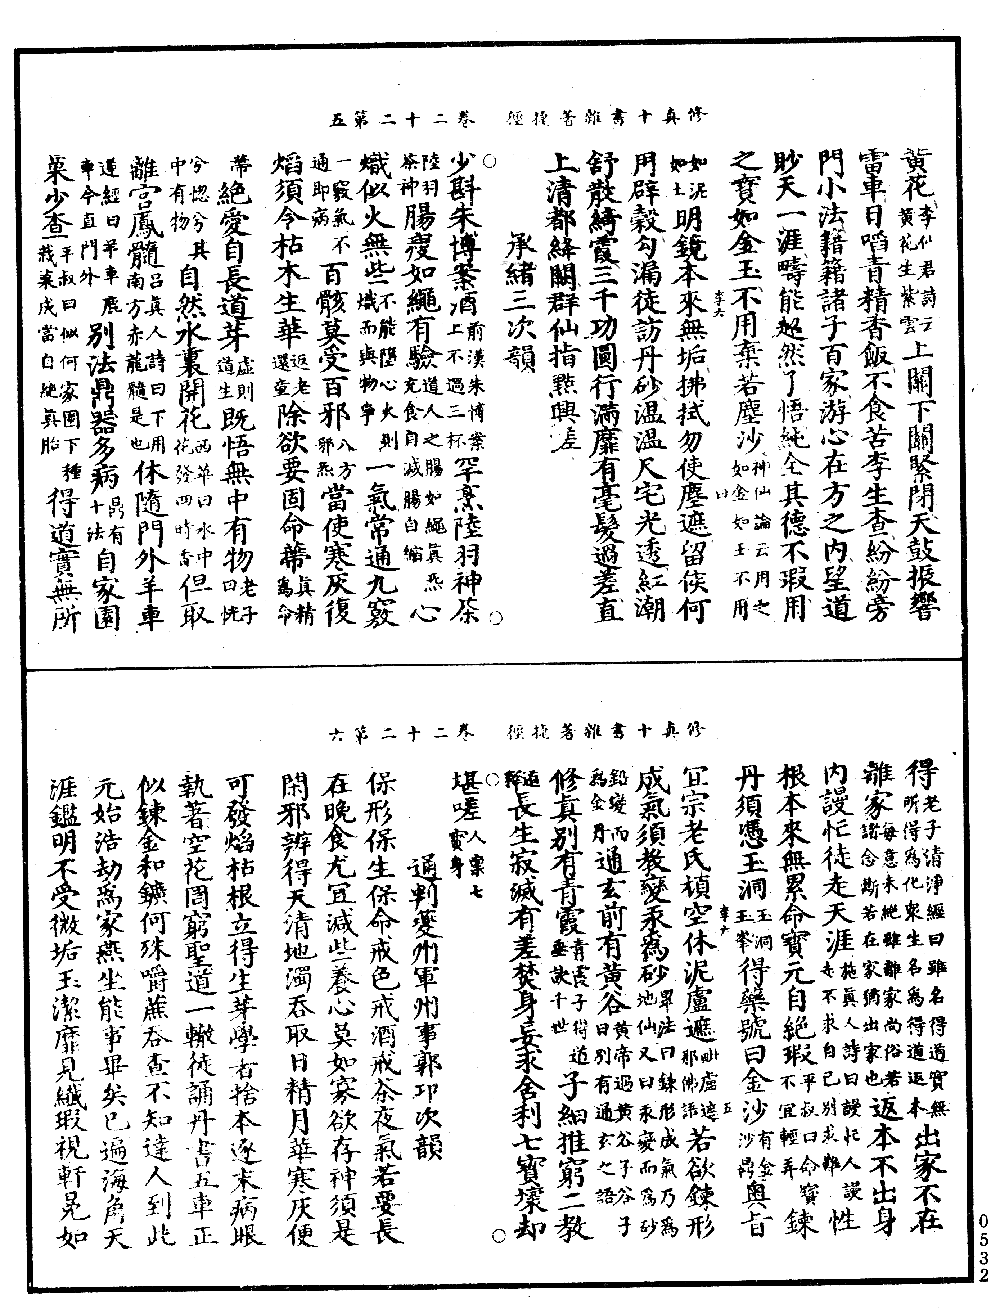 修真十書雜著捷徑　卷二十二第五
黃花李仙君詩云黃花生紫雲上關下關緊閉天鼓振響
雷車日㗖青精香飯不食苦李生查紛紛旁
門小法籍籍諸子百家游心在方之內望道
眇天一涯疇能超然了悟純全其德不瑕用
之寶如金玉不用棄若塵沙神仙論云用之如金如玉不用曰
如泥如土明鏡本來無垢拂拭勿使塵遮留侯何
用辟穀勾漏徒訪丹砂溫溫尺宅光透紅潮
舒散綺霞三千功圓行滿靡有毫髮過差直
上清都絳闕群仙指點興差
承緒三次韻
少斟朱博案酒前漢朱博案上不過三杯罕烹陸羽神茶
陸羽茶神腸瘦如繩有驗道人之腸如繩眞炁充食自減腸自縮心
熾似火無些不能墮心火則熾而與物爭一氣常通九竅
一竅氣不通即病百骸莫受百邪八方邪炁當使寒灰復
焰須令枯木生華返老還童除欲要固命蔕眞精爲命
蔕絕愛自長道芽虛則道生既悟無中有物老子曰恍
兮惚兮其中有物自然水裏開花西華曰水中花發四時香但取
離宮鳳髓呂眞人詩曰下用南方赤龍髓是也休隨門外羊車
蓮經曰羊車鹿車今直門外別法鼎器多病鼎有十法自家園
果少查平叔曰似何家園下種栽果成當自絕眞胎得道實無所
修真十書雜著捷徑　卷二十二第六
得老子清淨經曰雖名得道實無所得爲化衆生名爲得道返本出家不在
離家每意未絕雖離家尚俗若諸念斯若在家猶出家也返本不出身
內謾忙徒走天涯施眞人詩曰謾忙人謾走不求自己別求難性
根本來無累命寶元自絕瑕平叔曰命寶不宜輕弄鍊
丹須憑玉洞玉洞玉峯得藥號曰金沙有金沙鼎奧旨
宜宗老氏頑空休泥盧遮毗盧遮那佛語若欲鍊形
成氣須教變汞爲砂畢法曰鍊形成氣乃爲地仙又曰汞變而爲砂
鉛變而爲金丹通玄前有黃谷黃帝過黃谷子谷子曰別有通玄之語
修真別有青霞青霞子得道垂訣千世子細推窮二教
道釋長生寂滅有差焚身妄求舍利七寶壞却
堪嗟人業七寶身
通判夔州軍州事郭卬次韻
保形保生保命戒色戒酒戒茶夜氣若要長
在晚食尤宜減些養心莫如寡欲存神須是
閑邪辨得天清地濁吞取日精月華寒灰便
可發焰枯根立得生芽學者捨本逐末病眼
執著空花罔窮聖道一轍徒誦丹書五車正
似鍊金和鑛何殊嚼蕉吞查不知達人到此
元始浩劫爲家燕坐能事畢矣已遍海角天
涯鑑明不受微垢玉潔靡見纖瑕視軒冕如
0532